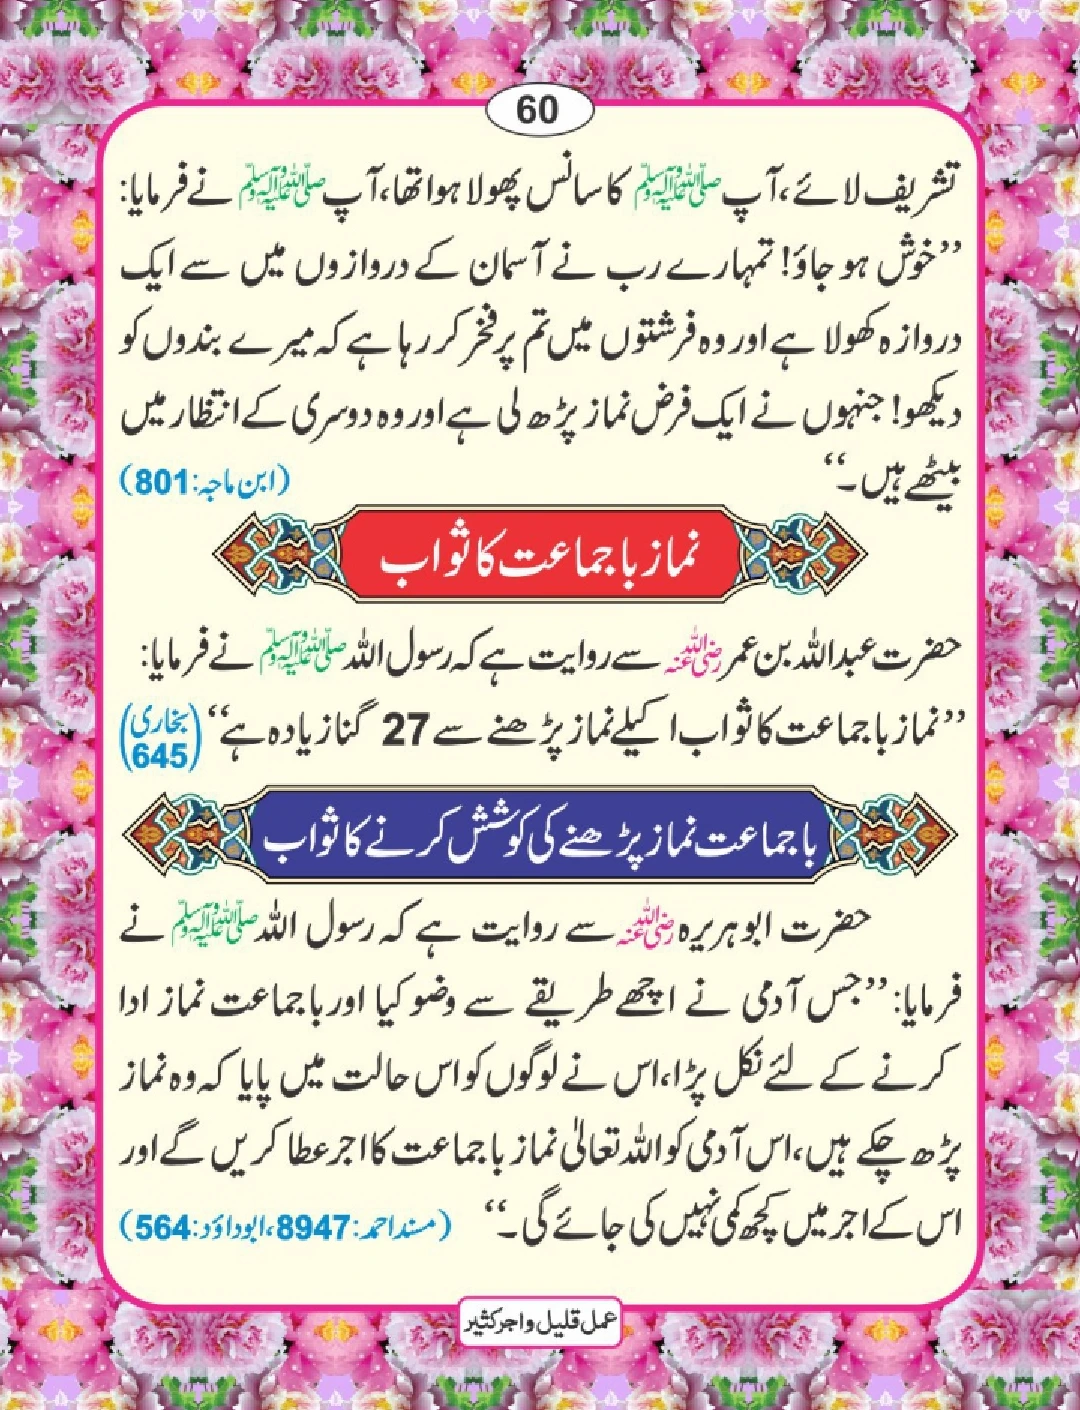 60
تشریف لائے، آپ ﷺ کا سانس پھولا ہوا تھا، آپ ﷺ نے فرمایا:
’’خوش ہو جاؤ! تمہارے رب نے آسمان کے دروازوں میں سے ایک
دروازہ کھولا ہے اور وہ فرشتوں میں تم پر فخر کر رہا ہے کہ میرے بندوں کو
دیکھو! جنہوں نے ایک فرض نماز پڑھ لی ہے اور وہ دوسری کے انتظار میں
بیٹھے ہیں۔‘‘ (ابن ماجہ: 801)
نماز باجماعت کا ثواب
حضرت عبداللہ بن عمر رضی اللہ عنہ سے روایت ہے کہ رسول اللہ ﷺ نے فرمایا:
’’نماز باجماعت کا ثواب اکیلے نماز پڑھنے سے 27 گنا زیادہ ہے‘‘ (بخاری 645)
باجماعت نماز پڑھنے کی کوشش کرنے کا ثواب
حضرت ابوہریرہ رضی اللہ عنہ سے روایت ہے کہ رسول اللہ ﷺ نے
فرمایا: ’’جس آدمی نے اچھے طریقے سے وضو کیا اور باجماعت نماز ادا
کرنے کے لئے نکل پڑا، اس نے لوگوں کو اس حالت میں پایا کہ وہ نماز
پڑھ چکے ہیں، اس آدمی کو اللہ تعالیٰ نماز باجماعت کا اجر عطا کریں گے اور
اس کے اجر میں کچھ کمی نہیں کی جائے گی۔‘‘ (مسند احمد: 8947، ابوداؤد: 564)
عمل قلیل و اجر کثیر